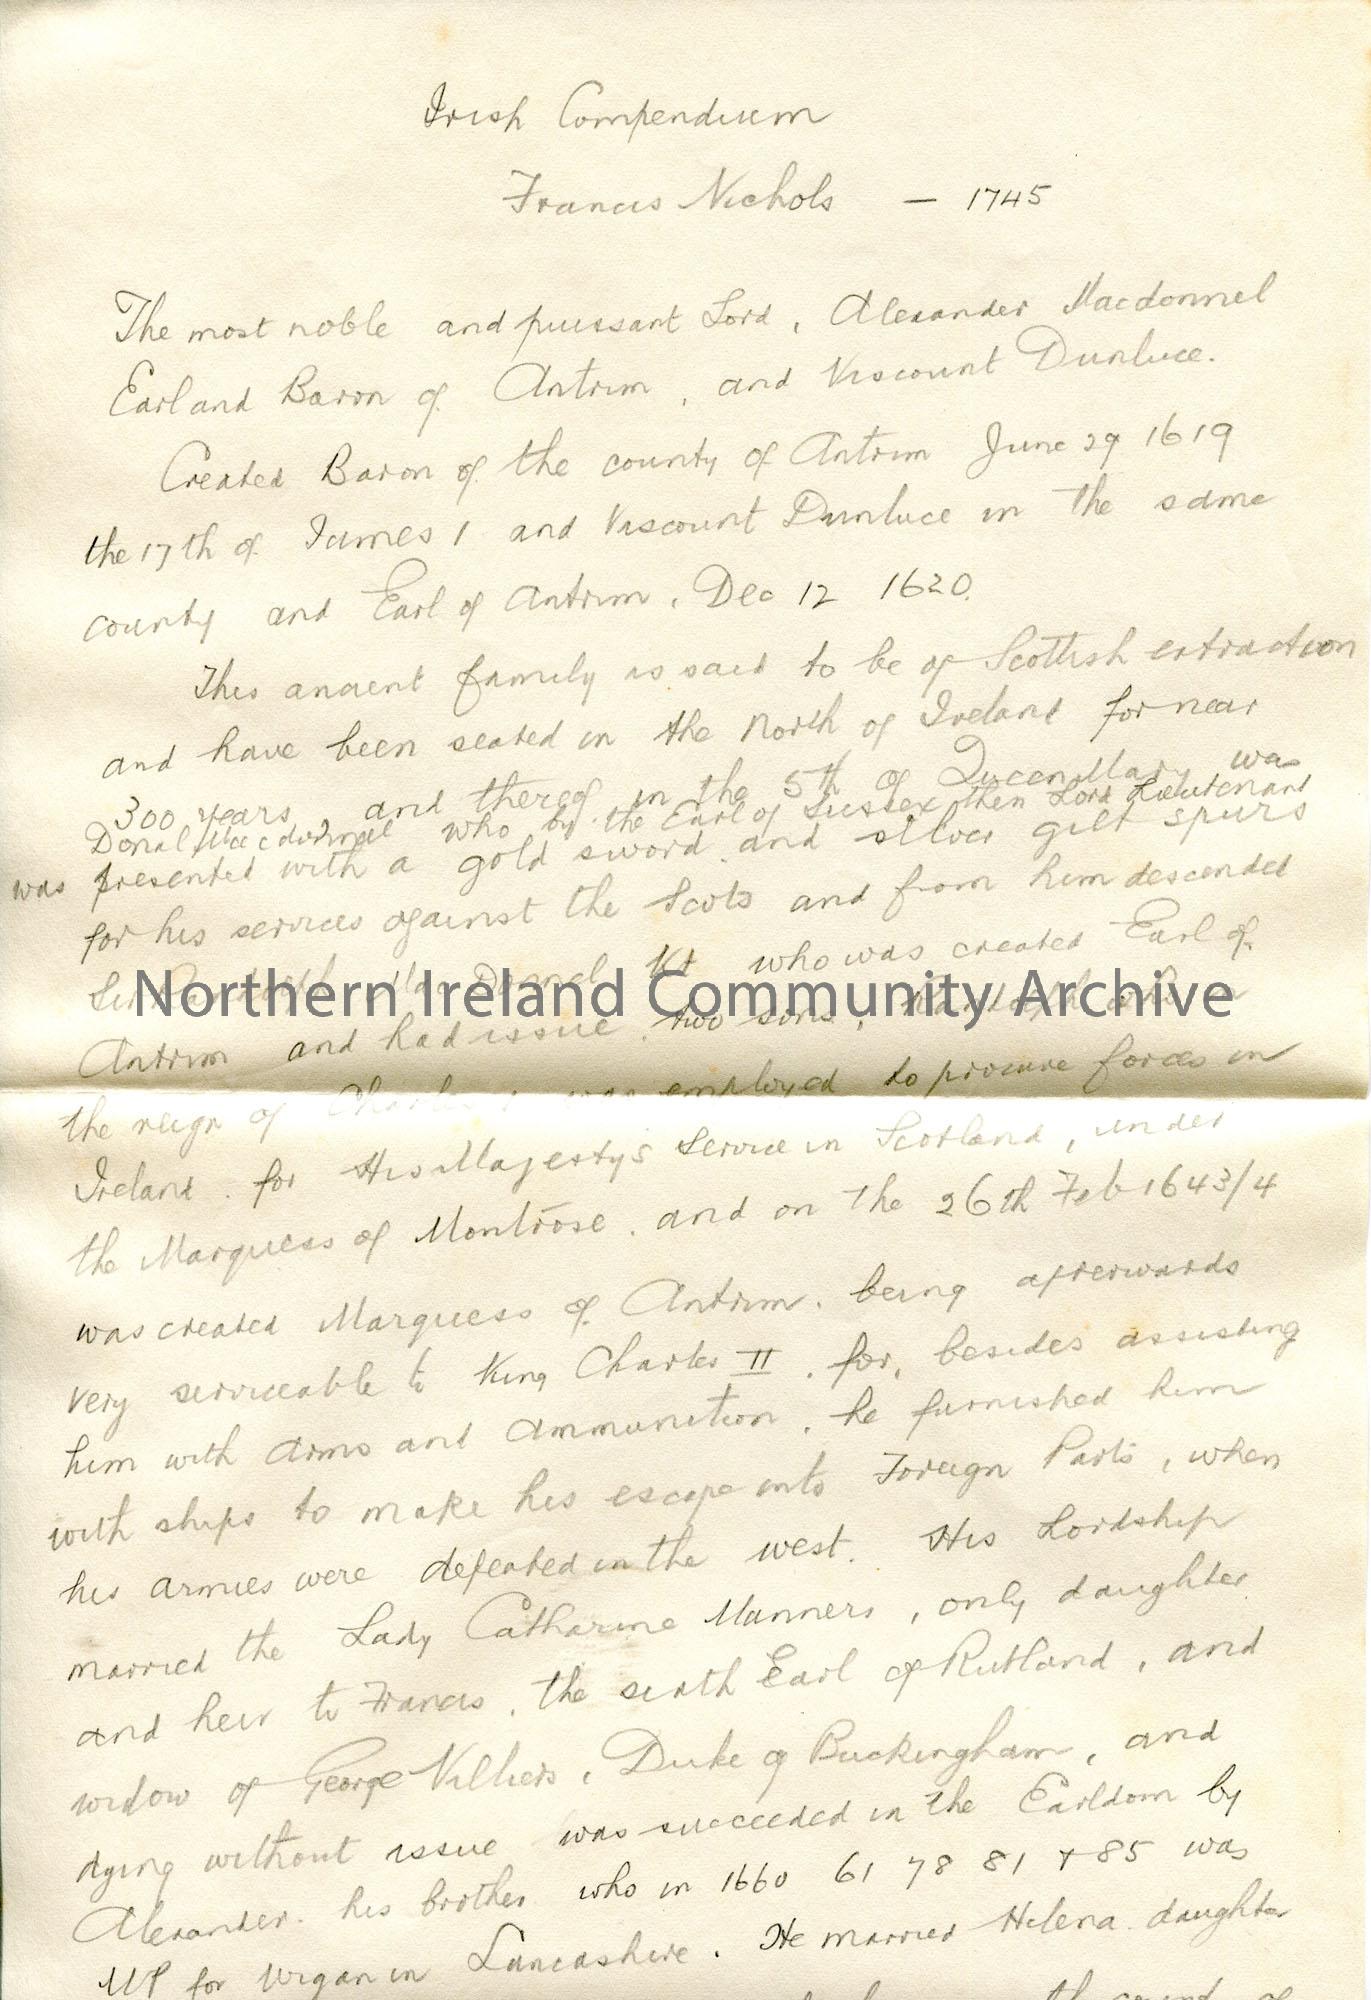 Irish Compendium
Francis Nichols — 1745
The most noble and puissant Lord, Alexander Macdonnel
Earl and Baron of Antrim, and Viscount Dunluce.
Created Baron of the county of Antrim June 29 1619
the 17th of James 1 and Viscount Dunluce in the same
county and Earl of Antrim, Dec 12 1620.
This ancient family is said to be of Scottish extraction
and have been seated in the North of Ireland for near
300 years, and thereof in the 5th of Queen Mary was
Donal Macdonnal who by the Earl of Sussex then Lord Lieutenant
was presented with a gold sword and silver gilt spurs
for his services against the Scots and from him descended
Sir MacDonnel Kt who was created Earl of
Northern Ireland Community Archive
Antrim and had issue two sons, who in
the reign of Charles 1 was employed to procure forces in
Ireland for His Majesty's Service in Scotland, under
the Marquess of Montrose, and on the 26th Feb 1643/4
was created Marquess of Antrim, being afterwards
very serviceable to King Charles II, for, besides assisting
him with arms and ammunition, he furnished him
with ships to make his escape into Foreign Parts, when
his armies were defeated in the west. His Lordship
married the Lady Catharine Manners, only daughter
and heir to Francis, the sixth Earl of Rutland, and
widow of George Villiers, Duke of Buckingham, and
dying without issue was succeeded in the Earldom by
Alexander his brother who in 1660 61 78 81 + 85 was
MP for Wigan in Lancashire. He married Helena daughter